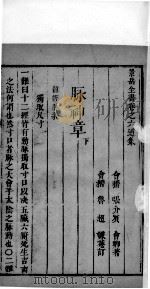 景岳全書卷之六道集
會稽 張介賓 會卿著
會稽 魯超 謙菴訂
脉神章下
難經脉義
獨取寸口
一難曰十二經皆有動脉獨取寸口以決五臟六腑死生吉凶
之法何謂也然寸口者脉之大會手太陰之脉動也〇二難